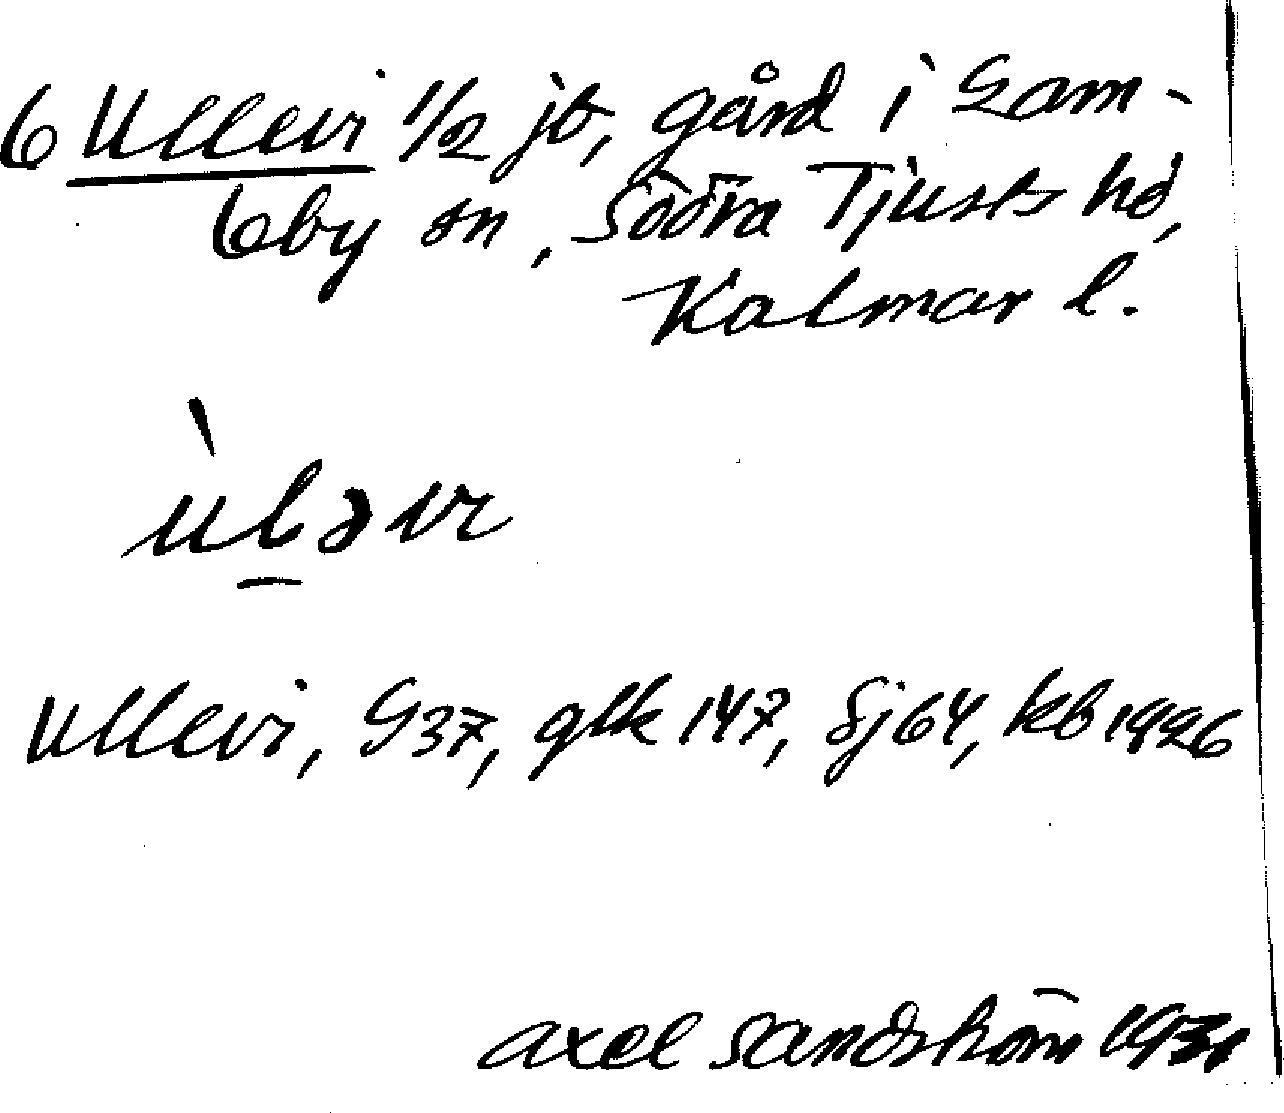 6 Ullevi 1/2 jb, gård i Gam-
leby sn, Södra Tjusts hd,
Kalmar l.
ùləvɪ
Ullevi, G37, glk 147, Sj64, kb 1826
Axel Sandström 1931